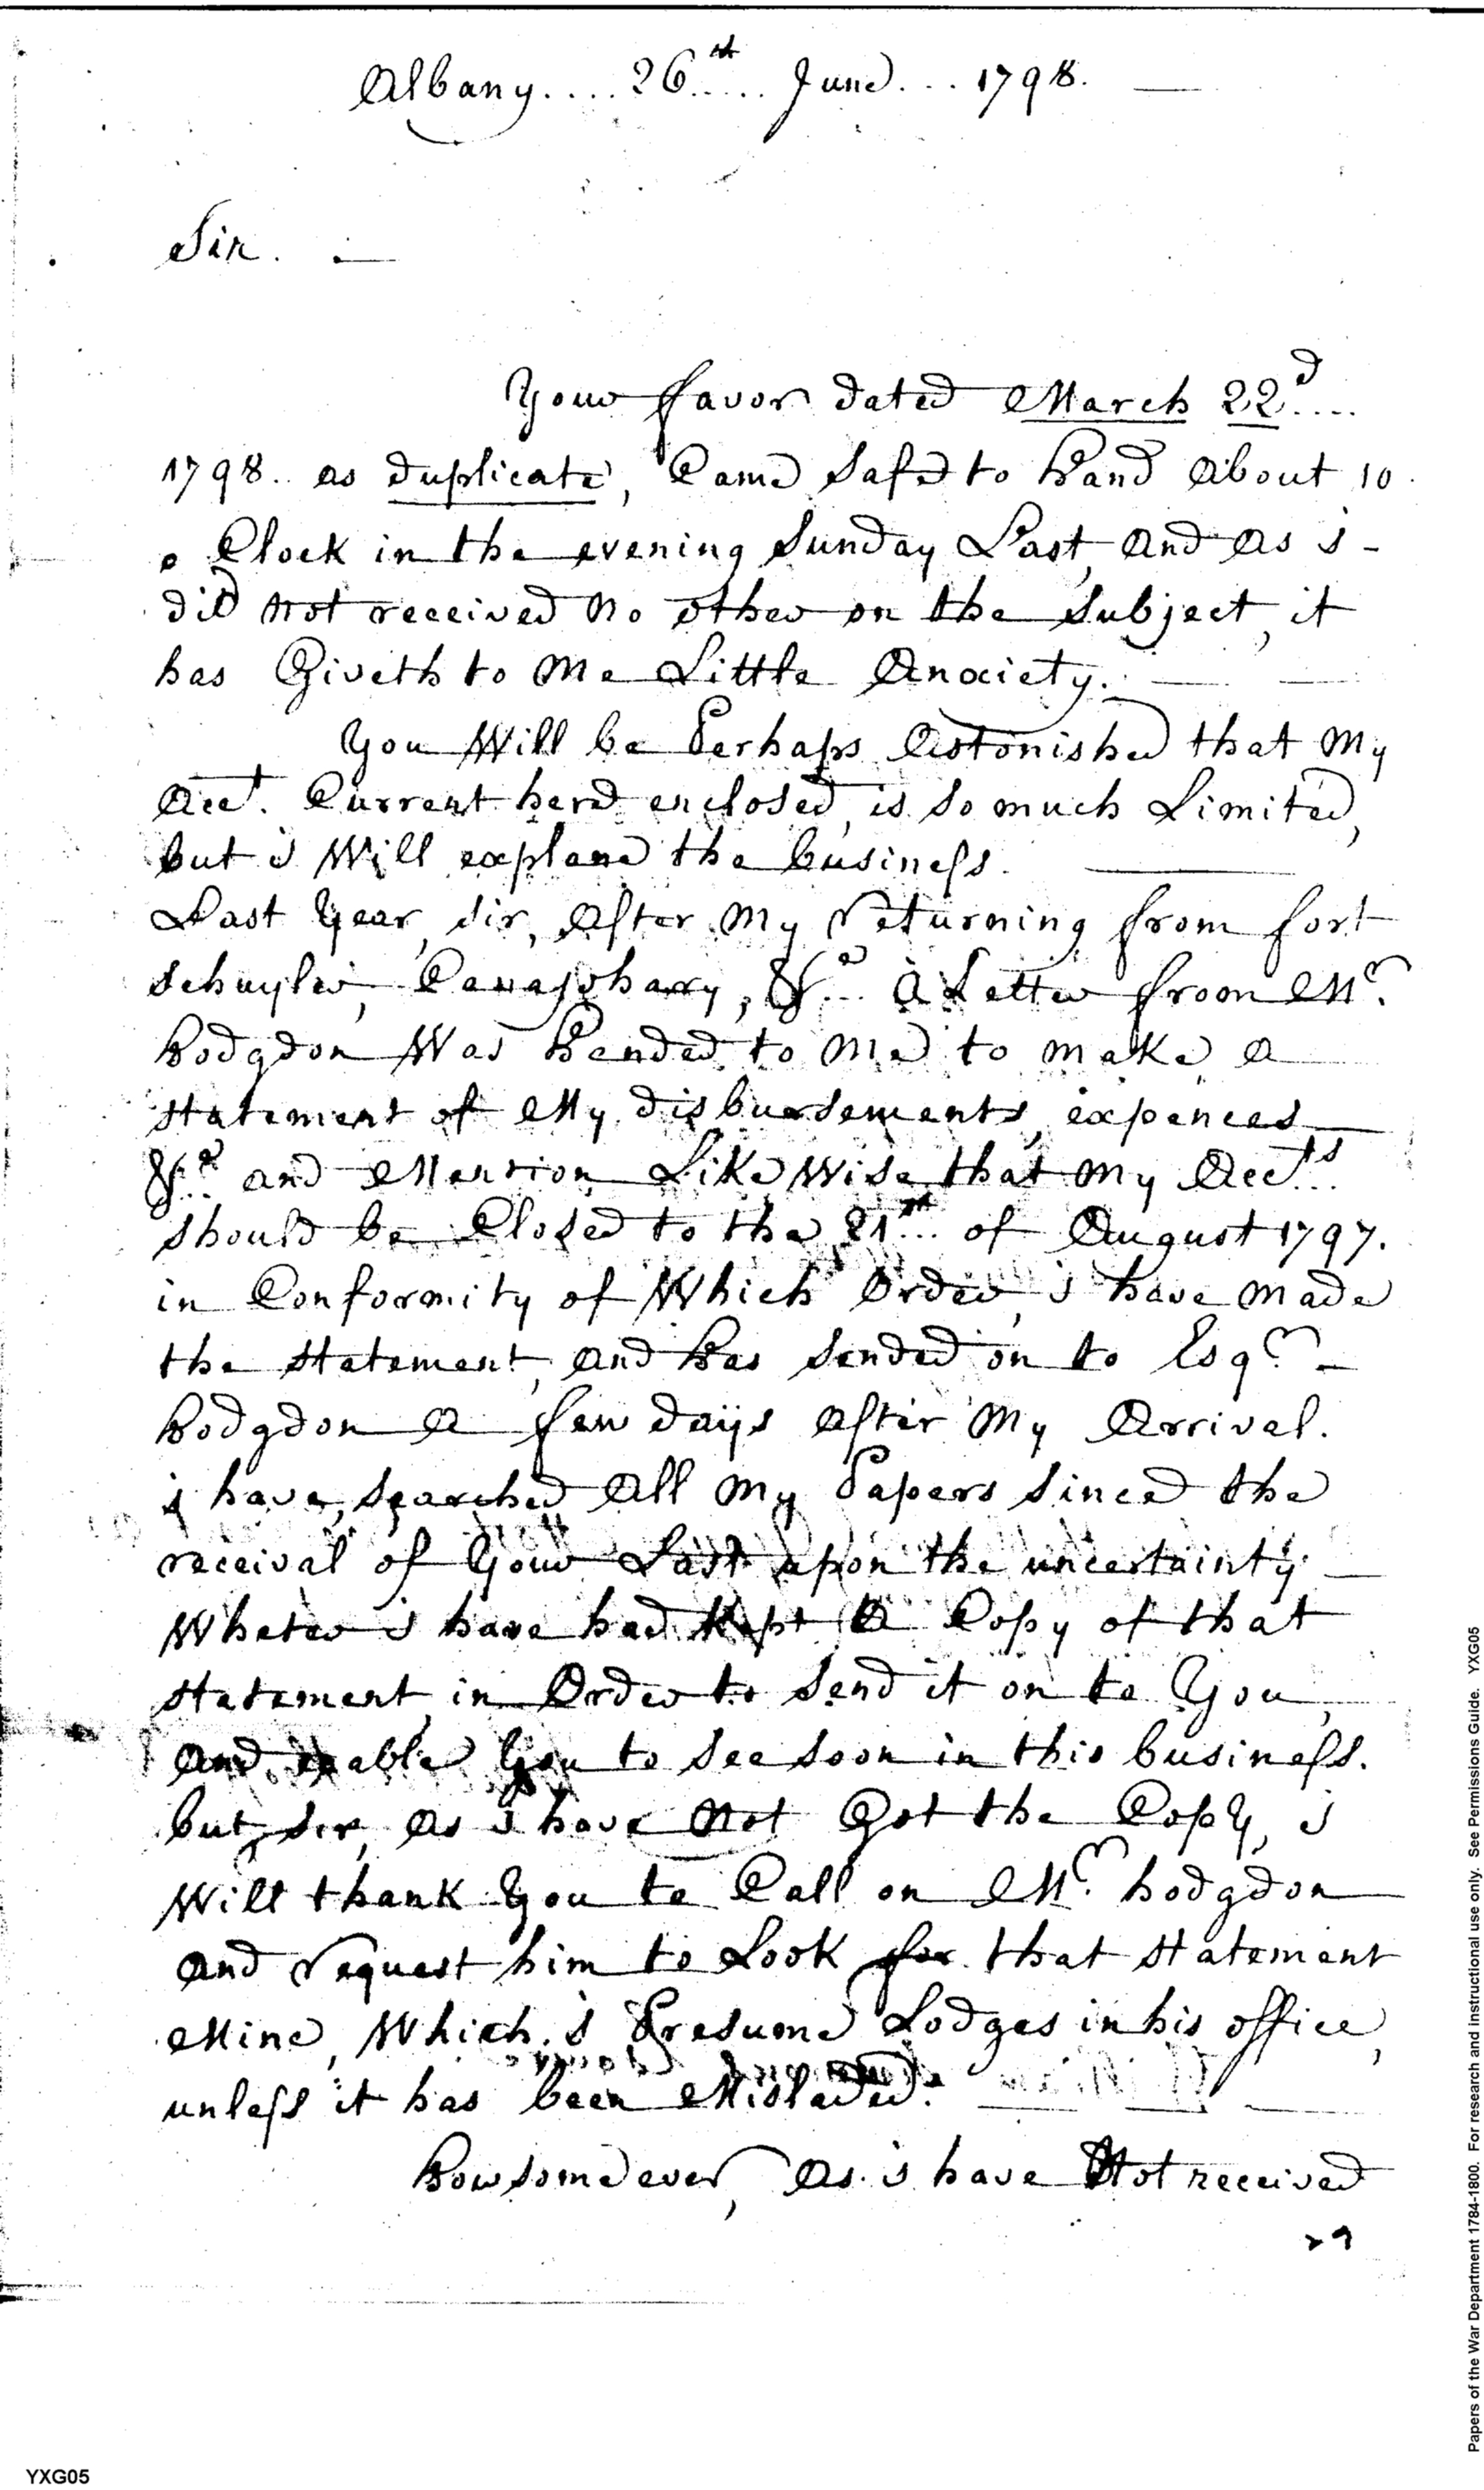 Albany.... 26st.... June.... 1798. —
Sir. . —
Your favor dated March 22d....
1798.. as duplicate, Came Safe to hand About 10
o Clock in the evening Sunday Last, And As i -
did Not received No other on the Subject, it
has Giveth to Me Little Anxiety. — —
You Will be Perhaps Astonished that My
Acct. Current here enclosed, is So much Limited,
but i Will explane the business. —
Last Year, Sir, After My returning from fort
Schuyler, Canajohary, &a... A Letter from Mr.
hodgdon Was handed to Me to make a
statement of My disbursements, expences —
&a... and Mention LikeWise that My Accts...
should be Closed to the 21st... of August 1797.
in Conformity of Which Order, i have made
the statement, And has Sended on to Esqr. -
hodgdon A few days After My Arrival.
i have, Searched All My Papers Since the
receival of Your Last upon the uncertainty —
Wheter i have had Kept A Copy of that
statement, in Order to Send it on to You,
And enable You to See Soon in this business.
but, Sir, As i have Not Got the Copy, i
Will thank You to Call on Mr. hodgdon
And request him to Look for that statement
Mine, Which i Presume Lodges in his office,
unless it has been Misladed. — —
howsomeever, As i have Not received
29
YXG05
Papers of the War Department 1784-1800. For research and instructional use only. See Permissions Guide. YXG05